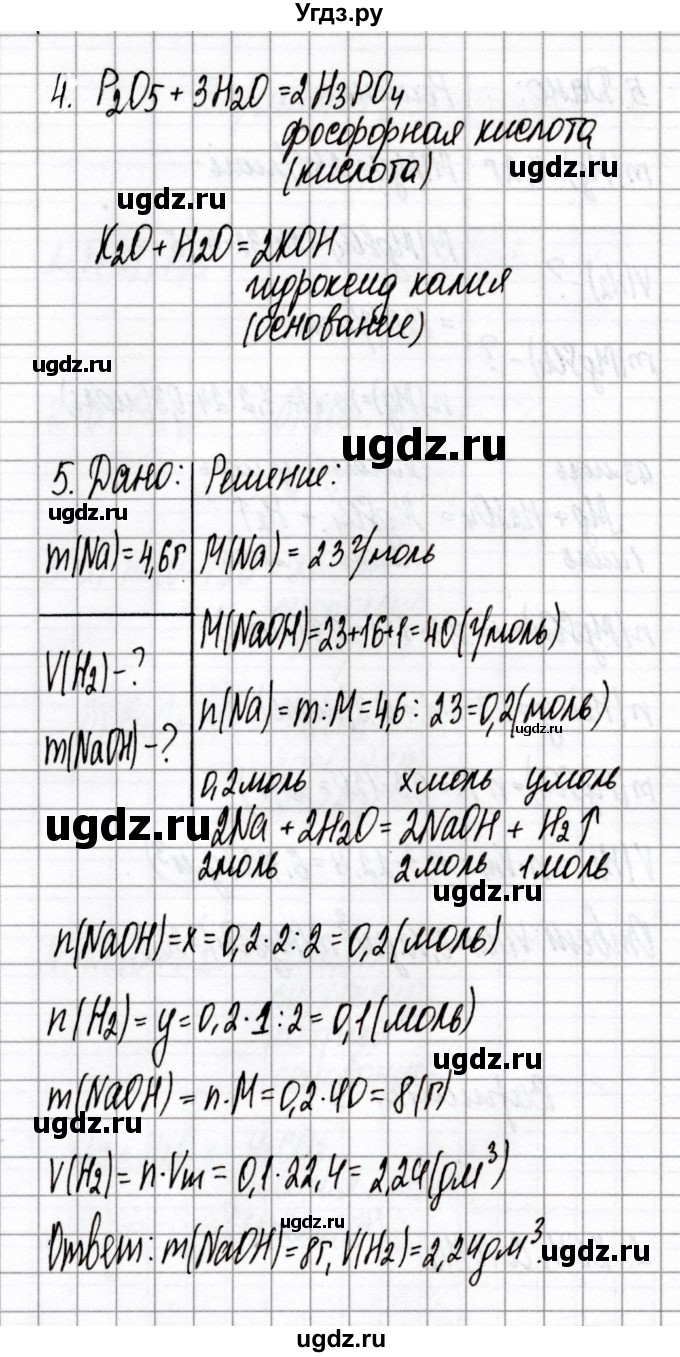 Угдз.ру
4. P₂O₅ + 3H₂O = 2H₃PO₄
фосфорная кислота
(кислота)
ugdz.ru
ugdz.ru
K₂O + H₂O = 2KOH
гидроксид калия
(основание)
ugdz.ru
ugdz.ru
ugdz.ru
5. Дано: Решение:
ugdz.ru
m(Na) = 4,6г M(Na) = 23 г/моль
M(NaOH) = 23+16+1 = 40 (г/моль)
ugdz.ru
V(H₂) - ?
n(Na) = m : M = 4,6 : 23 = 0,2 (моль)
ugdz.ru
m(NaOH) - ?
0,2 моль x моль y моль
ugdz.ru
2Na + 2H₂O = 2NaOH + H₂↑
2 моль 2 моль 1 моль
ugdz.ru
n(NaOH) = x = 0,2 · 2 : 2 = 0,2 (моль)
n(H₂) = y = 0,2 · 1 : 2 = 0,1 (моль)
ugdz.ru
m(NaOH) = n · M = 0,2 · 40 = 8 (г)
ugdz.ru
V(H₂) = n · Vm = 0,1 · 22,4 = 2,24 (дм³)
ugdz.ru
Ответ: m(NaOH) = 8г, V(H₂) = 2,24 дм³.
ugdz.ru
ugdz.ru